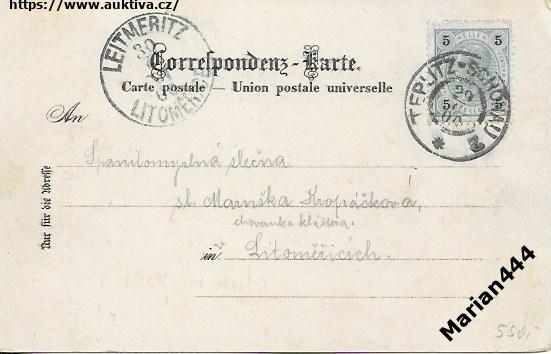 https://www.auktiva.cz/
LEITMERITZ
30
LITOMĚŘICE
5 HELLER 5
5 5
TEPLITZ-SCHÖNAU
29
* 2
Correspondenz-Karte.
Carte postale – Union postale universelle
An
Spanilomyslná slečna
sl. Maruška Kropáčková,
chovanka kláštera.
in v Litoměřicích.
Nur für die Adresse
Marian444
550,-